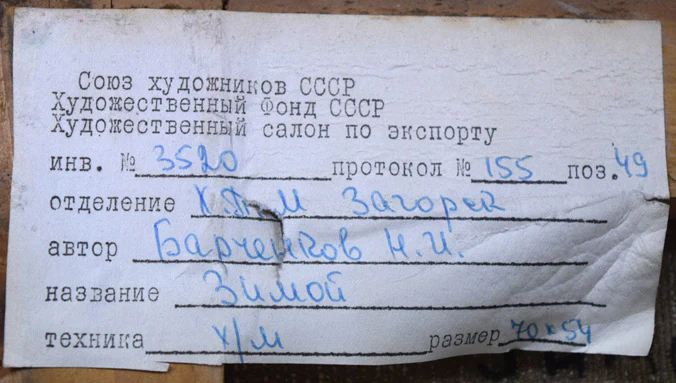 Союз художников СССР
Художественный Фонд СССР
Художественный салон по экспорту
инв. № 3520 протокол № 155 поз. 49
отделение Х.П.М Загорск
автор Барченков Н.И.
название Зимой
техника х/м размер 70x54